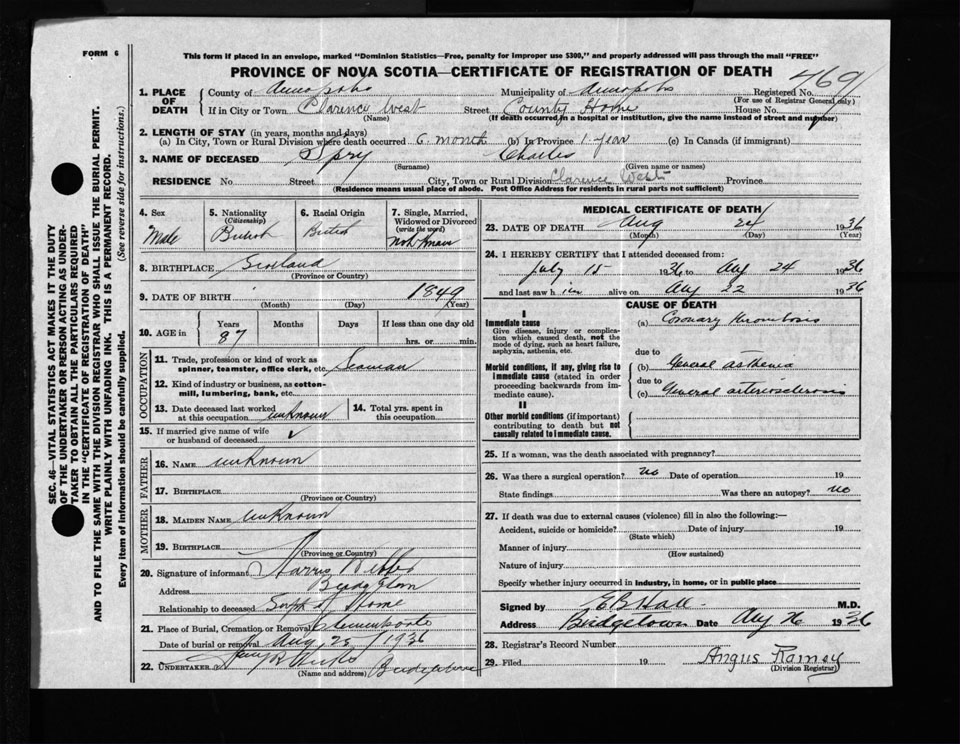 FORM 6
This form if placed in an envelope, marked "Dominion Statistics—Free, penalty for improper use $300," and properly addressed will pass through the mail "FREE"
PROVINCE OF NOVA SCOTIA—CERTIFICATE OF REGISTRATION OF DEATH
1. PLACE OF DEATH
County of Annapolis Municipality of Annapolis Registered No. 469
(For use of Registrar General only)
If in City or Town Clarence West Street County Home House No.
(Name) (If death occurred in a hospital or institution, give the name instead of street and number)
2. LENGTH OF STAY (in years, months and days)
(a) In City, Town or Rural Division where death occurred 6 month (b) In Province 1 year (c) In Canada (if immigrant)
3. NAME OF DECEASED Spry Charles
(Surname) (Given name or names)
RESIDENCE No. Street City, Town or Rural Division Clarence West Province
(Residence means usual place of abode. Post Office Address for residents in rural parts not sufficient)
4. Sex
Male
5. Nationality
(Citizenship)
British
6. Racial Origin
British
7. Single, Married, Widowed or Divorced
(write the word)
8. BIRTHPLACE
(Province or Country)
9. DATE OF BIRTH 1849
(Month) (Day) (Year)
10. AGE in Years Months Days If less than one day old
87 hrs. or min.
OCCUPATION
11. Trade, profession or kind of work as spinner, teamster, office clerk, etc. Seaman
12. Kind of industry or business, as cotton-mill, lumbering, bank, etc.
13. Date deceased last worked at this occupation unknown
14. Total yrs. spent in this occupation
15. If married give name of wife or husband of deceased ✓
FATHER
16. NAME unknown
17. BIRTHPLACE
(Province or Country)
MOTHER
18. MAIDEN NAME unknown
19. BIRTHPLACE
(Province or Country)
20. Signature of informant Harris
Address Bridgetown
Relationship to deceased Supt of Home
21. Place of Burial, Cremation or Removal
Date of burial or removal Aug 25 / 1936
22. UNDERTAKER Hicks Bridgetown
(Name and address)
MEDICAL CERTIFICATE OF DEATH
23. DATE OF DEATH Aug 24 1936
(Month) (Day) (Year)
24. I HEREBY CERTIFY that I attended deceased from:
July 15 1936 to Aug 24 1936
and last saw him alive on Aug 22 1936
CAUSE OF DEATH
I
Immediate cause
Give disease, injury or complication which caused death, not the mode of dying, such as heart failure, asphyxia, asthenia, etc.
(a) Coronary thrombosis
due to
Morbid conditions, if any, giving rise to immediate cause (stated in order proceeding backwards from immediate cause).
(b) General asthenia
due to
(c) General arteriosclerosis
II
Other morbid conditions (if important) contributing to death but not causally related to immediate cause.
25. If a woman, was the death associated with pregnancy?
26. Was there a surgical operation? no Date of operation 19
State findings Was there an autopsy? no
27. If death was due to external causes (violence) fill in also the following:—
Accident, suicide or homicide? Date of injury 19
(State which)
Manner of injury
(How sustained)
Nature of injury
Specify whether injury occurred in industry, in home, or in public place
Signed by E B Hall M.D.
Address Bridgetown Date Aug 26 1936
28. Registrar's Record Number
29. Filed 19 Angus Ramey
(Division Registrar)
SEC. 46—VITAL STATISTICS ACT MAKES IT THE DUTY
OF THE UNDERTAKER OR PERSON ACTING AS UNDER-
TAKER TO OBTAIN ALL THE PARTICULARS REQUIRED
IN THE "CERTIFICATE OF REGISTRATION OF DEATH"
AND TO FILE THE SAME WITH THE DIVISION REGISTRAR WHO SHALL ISSUE THE BURIAL PERMIT.
WRITE PLAINLY WITH UNFADING INK. THIS IS A PERMANENT RECORD.
Every item of information should be carefully supplied. (See reverse side for instructions.)